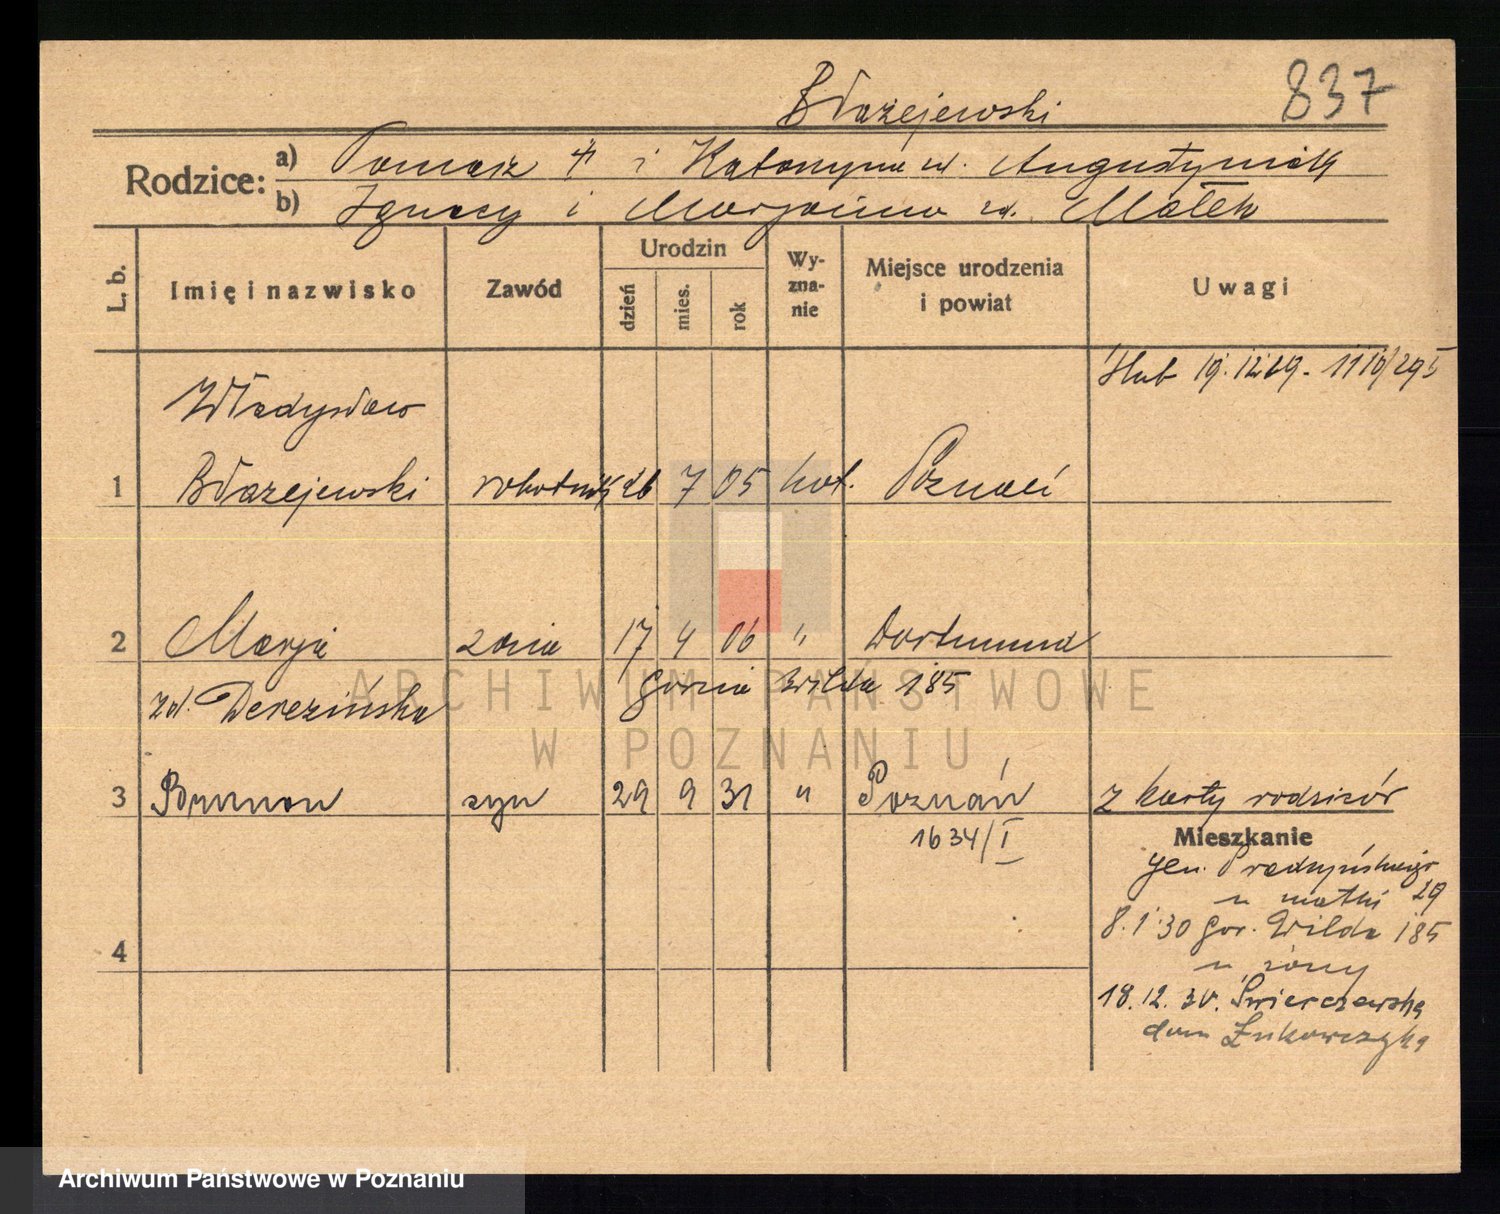 837
Błażejewski
Rodzice:
a) Tomasz † i Katarzyna zd. Augustyniak
b) Ignacy i Marjanna zd. Małek
L. b.
Imię i nazwisko
Zawód
Urodzin
dzień
mies.
rok
Wy-
zna-
nie
Miejsce urodzenia
i powiat
Uwagi
ślub 19.12.29. 1110/295
Władysław
1 Błażejewski robotnik 26 7 05 kat. Poznań
2 Marja żona 17 4 06 " Dortmund
zd. Derezińska
Górna Wilda 185
3 Brunon syn 29 9 31 " Poznań z karty rodziców
1634/I
Mieszkanie
gen. Prądzyńskiego
u matki 29
8.1.30 Gór. Wilda 185
u żony
4
18.12.30. Świerczewska
dom Łukowczyka
ARCHIWUM PAŃSTWOWE
W POZNANIU
Archiwum Państwowe w Poznaniu